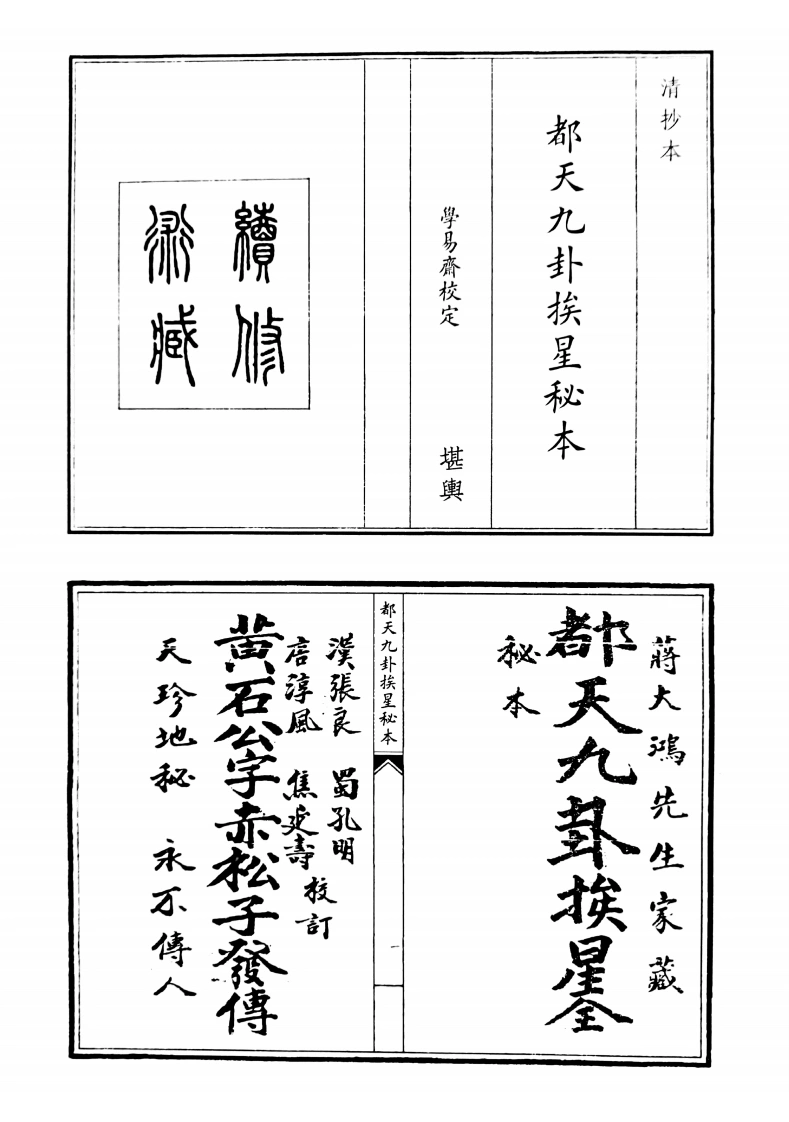 清抄本
都天九卦挨星秘本
學易齋校定 堪輿
續修
術藏
蔣大鴻先生家藏
都天九卦挨星全
秘本
都天九卦挨星秘本
一
漢張良 蜀孔明
唐淳風 焦延壽
校訂
黃石公字赤松子發傳
天珍地秘 永不傳人